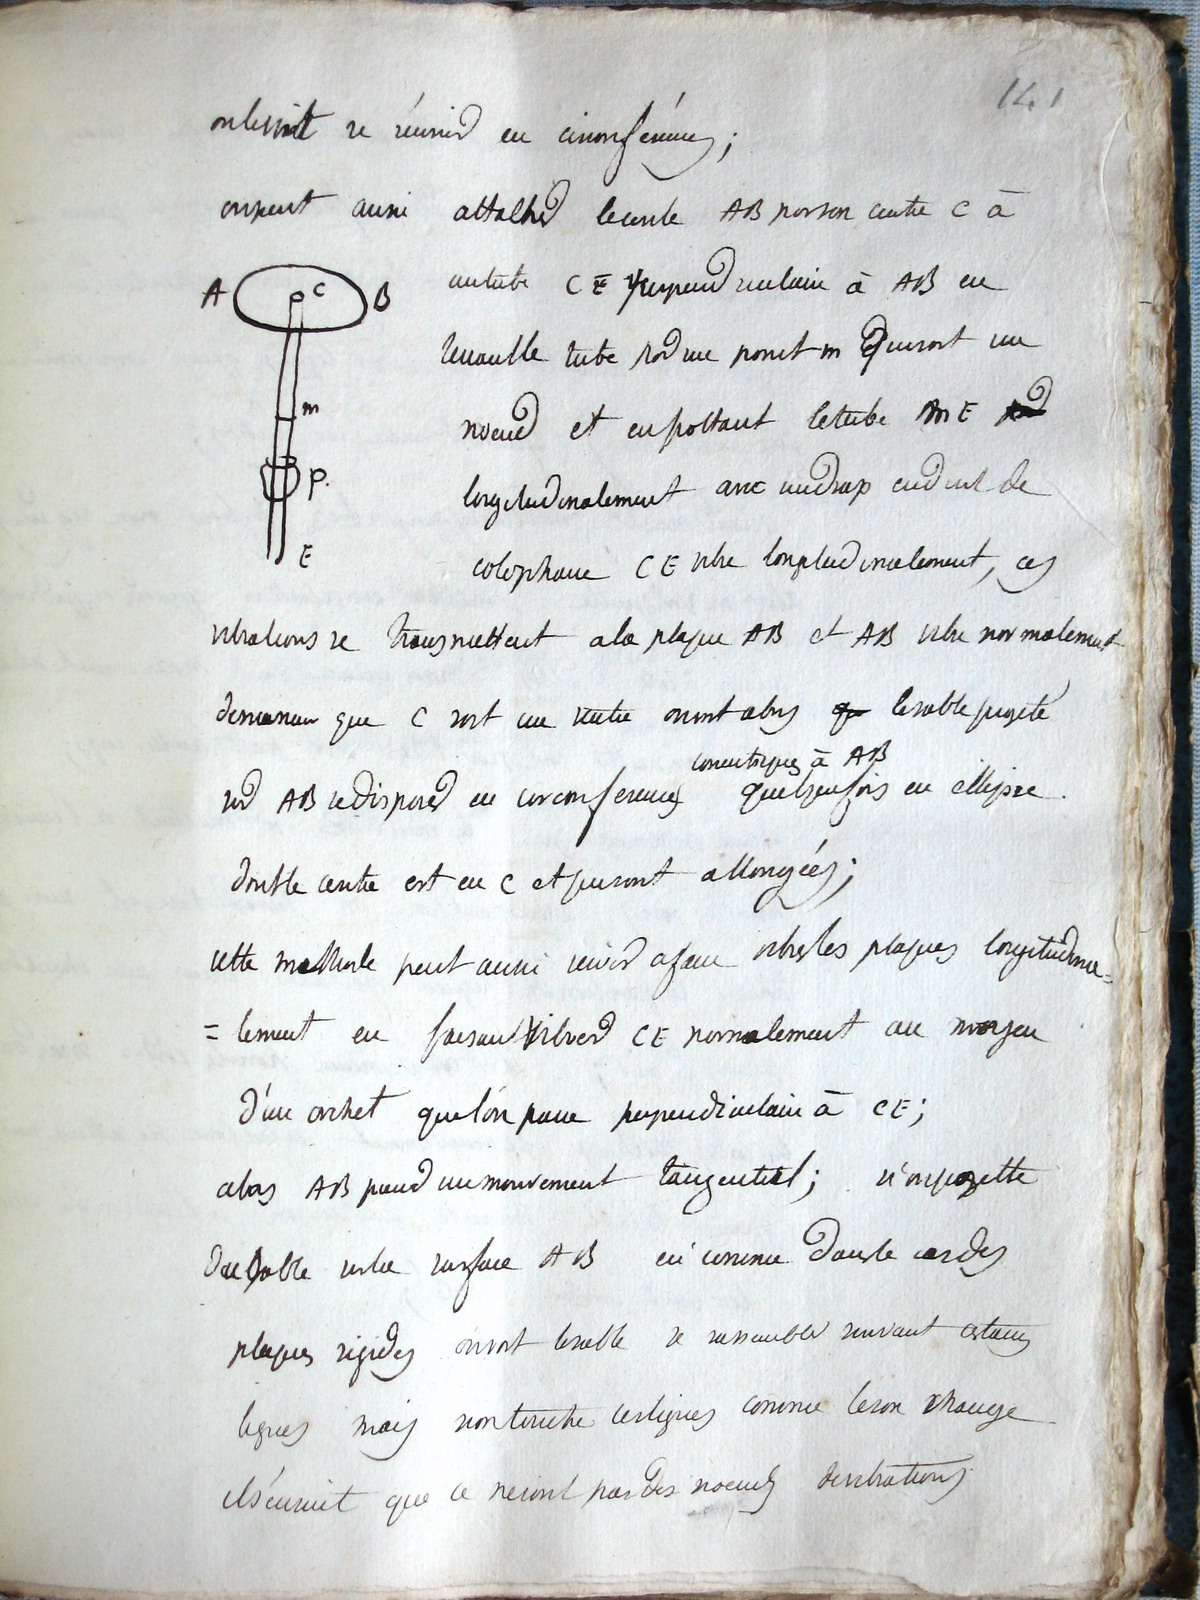 141
on le voit se réunir en circonférences ;
on peut aussi attacher le cercle AB par son centre C à
A C B
un tube CE perpendiculaire à AB en
tenant le tube par un point m qui soit un
m
noeud et en frottant le tube mE
P.
longitudinalement avec un drap enduit de
E
colophane CE vibre longitudinalement, ces
vibrations se transmettent a la plaque AB et AB vibre normalement
de maniere que C soit un ventre on voit alors le sable projeté
concentriques à AB
sur AB se disposer en circonferences quelquefois en ellipse
dont le centre est en C et qui sont allongées ;
cette methode peut aussi servir a faire vibrer les plaques longitudina=
=lement en faisant vibrer CE normalement au moyen
d'un archet que l'on passe perpendiculaire à CE ;
alors AB prend un mouvement tangentiel ; si on projette
du sable sur la surface AB ici comme dans le cas des
plaques rigides on voit le sable se rassembler suivant certaines
lignes mais si on touche ces lignes comme le son change
il s'ensuit que ce ne sont pas des noeuds de vibrations